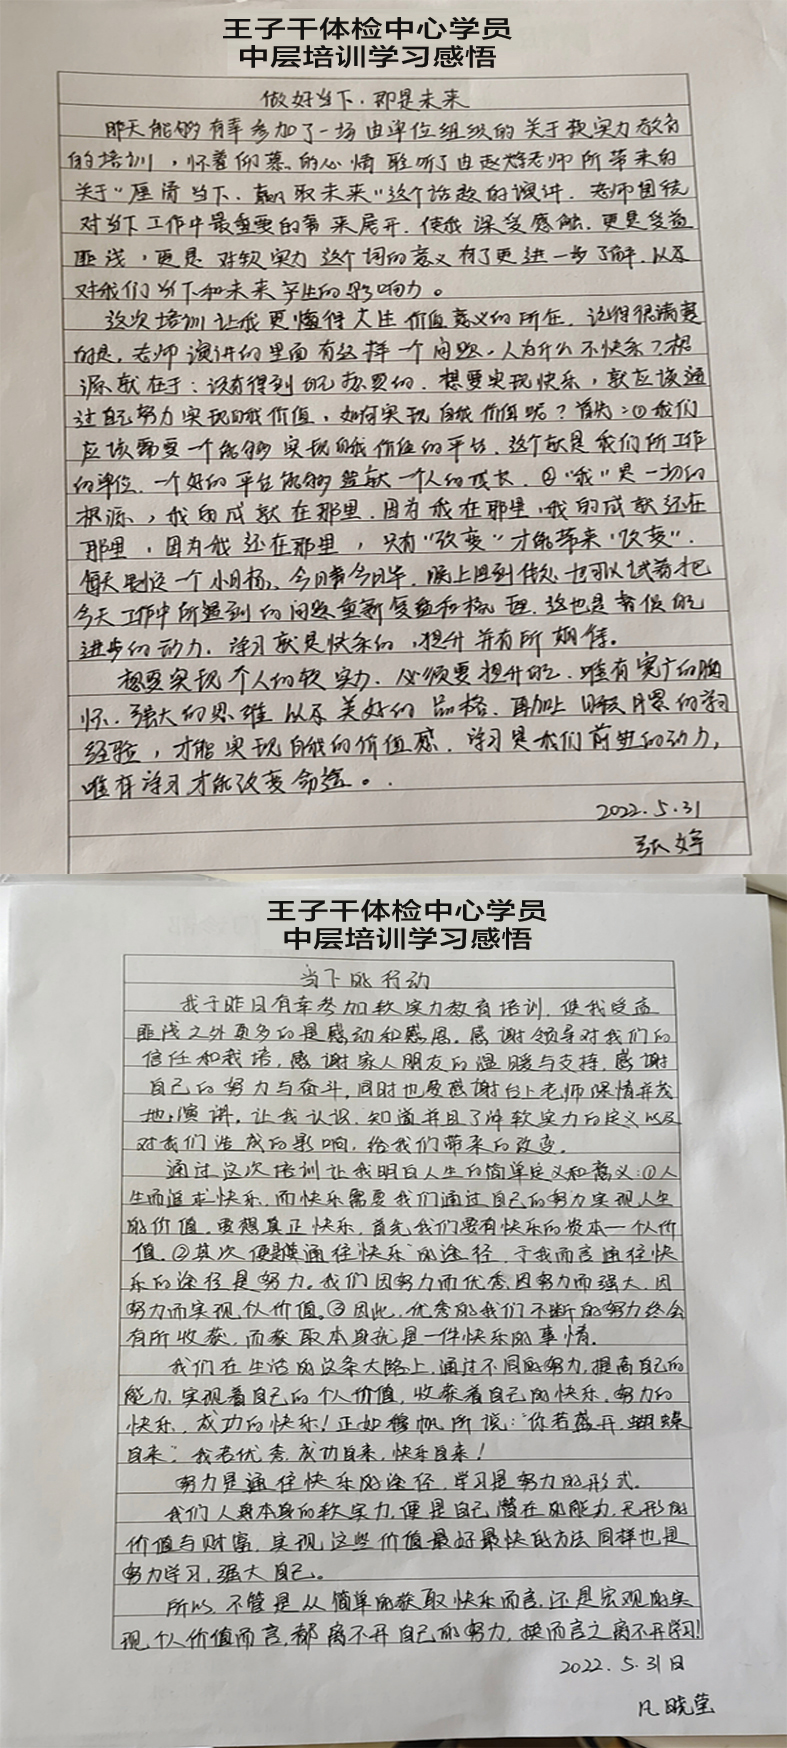 王子干体检中心学员
中层培训学习感悟
做好当下，即是未来
昨天能够有幸参加了一场由单位组织的关于软实力教育
的培训，怀着仰慕的心情聆听了由赵老师所带来的
关于“厘清当下，赢取未来”这个话题的演讲，老师围绕
对当下工作中最重要的事来展开，使我深受感触，更是受益
匪浅，更是对软实力这个词的意义有了更进一步了解，以及
对我们当下和未来产生的影响力。
这次培训让我更懂得人生价值意义的所在，记得很清楚
的是，老师演讲的里面有这样一个问题，人为什么不快乐？根
源就在于：没有得到自己想要的，想要实现快乐，就应该通
过自己努力实现自我价值，如何实现自我价值呢？首先：①我们
应该需要一个能够实现自我价值的平台，这个就是我们所工作
的单位，一个好的平台能够登献一个人的成长，②“我”是一切的
根源，我的成就在那里，因为我在那里，我的成就还在
那里，因为我还在那里，只有“改变”才能带来“改变”，
每天制定一个小目标，今日事今日毕，晚上回到家也可以试着把
今天工作中所遇到的问题重新复盘和梳理，这也是督促自己
进步的动力，学习就是快乐的，提升并有所期待。
想要实现个人的软实力，必须要提升自己，唯有宽广的胸
怀，强大的思维以及美好的品格，再加上日积月累的学习
经验，才能实现自我的价值感，学习是我们前进的动力，
唯有学习才能改变命运。
2022.5.31
张婷
王子干体检中心学员
中层培训学习感悟
当下的行动
我于昨日有幸参加软实力教育培训，使我受益
匪浅之外更多的是感动和感恩，感谢领导对我们的
信任和栽培，感谢家人朋友的温暖与支持，感谢
自己的努力与奋斗，同时也要感谢台上老师深情并茂
地演讲，让我认识、知道并且了解软实力的定义以及
对我们造成的影响，给我们带来的改变。
通过这次培训让我明白人生的简单定义和意义：①人
生而追求快乐，而快乐需要我们通过自己的努力实现人生
的价值，要想真正快乐，首先我们要有快乐的资本一个人价
值，②其次便是“通往快乐”的途径，于我而言通往快
乐的途径是努力。我们因努力而优秀，因努力而强大，因
努力而实现个人价值。③因此，优秀的我们不断的努力终会
有所收获，而获取本身就是一件快乐的事情。
我们在生活的这条大路上，通过不同的努力，提高自己的
能力，实现着自己的个人价值，收获着自己的快乐，努力的
快乐，成功的快乐！正如穆帆所说：“你若盛开，蝴蝶
自来”，我若优秀，成功自来，快乐自来！
努力是通往快乐的途径，学习是努力的形式，
我们人身本身的软实力，便是自己潜在的能力，无形的
价值与财富，实现这些价值最好最快的方法同样也是
努力学习，强大自己。
所以，不管是从简单的获取快乐而言，还是宏观的实
现个人价值而言，都离不开自己的努力，换而言之离不开学习！
2022.5.31日
凡晓莹